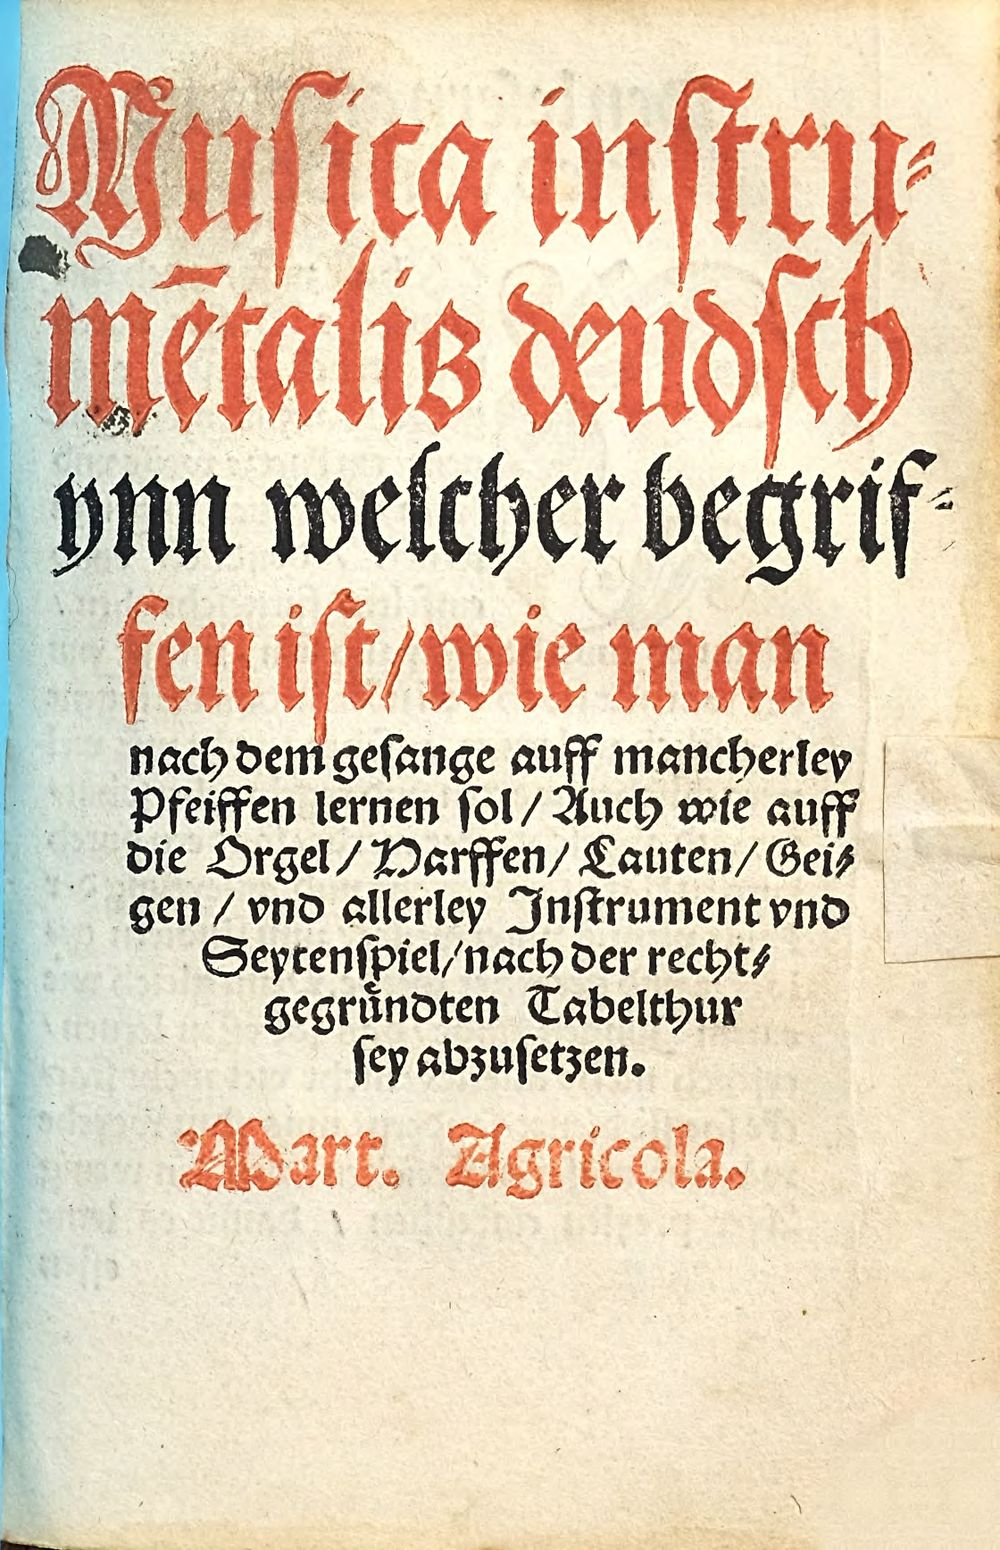 Musica instru-
mētalis deudsch
ynn welcher begrif-
fen ist/ wie man
nach dem gesange auff mancherley
Pfeiffen lernen sol / Auch wie auff
die Orgel / Harffen / Lauten / Gei-
gen / vnd allerley Instrument vnd
Seytenspiel / nach der recht-
gegrůndten Tabelthur
sey abzusetzen.
Mart. Agricola.